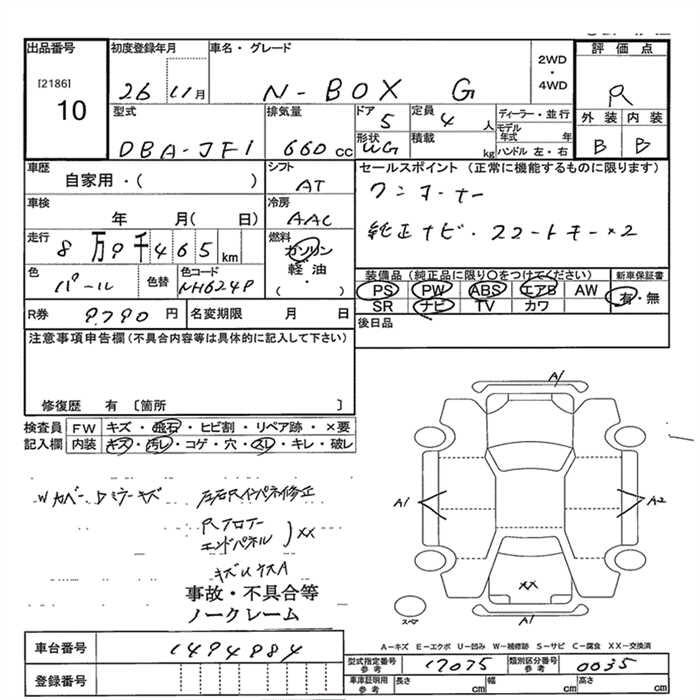 出品番号
[2186]
10
初度登録年月
26 11月
車名・グレード
N-BOX G
2WD
・
4WD
評価点
R
外装 内装
B B
型式
DBA-JF1
排気量
660cc
ドア
5
定員
4人
形状
WG
積載
kg
ディーラー・並行
モデル年式 年
ハンドル 左・右
車歴
自家用・( )
シフト
AT
車検
年 月( 日)
冷房
AAC
走行
8万9千465km
燃料
ガソリン
軽油
・
( )
色
パール
色替
色コード
NH624P
R券
9790円
名変期限 月 日
セールスポイント(正常に機能するものに限ります)
ワンオーナー
純正ナビ・スマートキー×2
装備品(純正品に限り○をつけてください)
新車保証書
PS PW ABS エアB AW
有・無
SR ナビ TV カワ
後日品
注意事項申告欄(不具合内容等は具体的に記入して下さい)
修復歴 有 〔箇所 〕
検査員
記入欄
FW キズ・飛石・ヒビ割・リペア跡・×要
内装 キズ・汚レ・コゲ・穴・スレ・キレ・破レ
左右Rインパネ修正
Rフロアー
エンドパネル )XX
事故・不具合等
ノークレーム
A1
A1
A2
XX
A1
スペア
A-キズ E-エクボ U-凹み W-補修跡 S-サビ C-腐食 XX-交換済
車台番号
1494884
登録番号
型式指定番号
参考
17075
類別区分番号
参考
0035
車庫証明用
参考
長さ cm
幅 cm
高さ cm